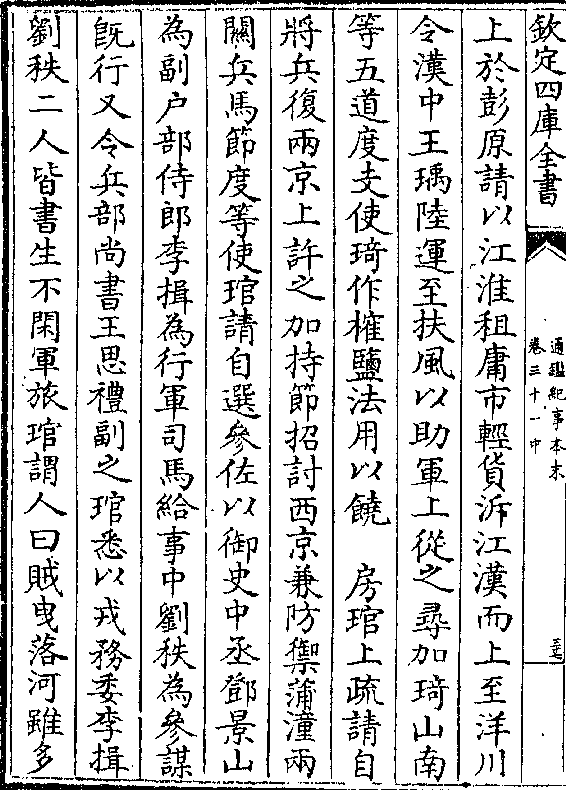 欽定四庫全書
通鑑紀事本末
卷三十一中
上於彭原請以江淮租庸市輕貨泝江漢而上至洋川
令漢中王瑀陸運至扶風以助軍上從之尋加琦山南
等五道度支使琦作榷鹽法用以饒　房琯上疏請自
將兵復兩京上許之加持節招討西京兼防禦蒲潼兩
關兵馬節度等使琯請自選參佐以御史中丞鄧景山
為副户部侍郎李揖為行軍司馬給事中劉秩為參謀
既行又令兵部尚書王思禮副之琯悉以戎務委李揖
劉秩二人皆書生不閑軍旅琯謂人曰賊曳落河雖多